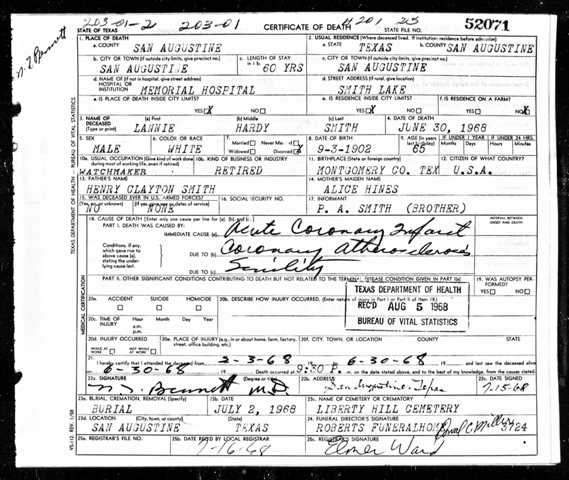 203-01-2 203-01 4201 25
STATE OF TEXAS CERTIFICATE OF DEATH 52071
1. PLACE OF DEATH 2. USUAL RESIDENCE (Where deceased lived. If institution: residence before admission)
a. COUNTY SAN AUGUSTINE a. STATE TEXAS b. COUNTY SAN AUGUSTINE
b. CITY OR TOWN (If outside city limits, give precinct no.) c. LENGTH OF STAY in 1b c. CITY OR TOWN (If outside city limits, give precinct no.)
SAN AUGUSTINE 60 YRS SAN AUGUSTINE
d. NAME OF (If not in hospital, give street address) HOSPITAL OR INSTITUTION d. STREET ADDRESS (If rural, give location)
MEMORIAL HOSPITAL SMITH LAKE
e. IS PLACE OF DEATH INSIDE CITY LIMITS? e. IS RESIDENCE INSIDE CITY LIMITS? f. IS RESIDENCE ON A FARM?
YES X NO YES X NO YES NO X
3. NAME OF DECEASED (Type or print) (a) First (b) Middle (c) Last 4. DATE OF DEATH
LANNIE HARDY SMITH JUNE 30, 1968
5. SEX 6. COLOR OR RACE 7. Married Never Married Widowed Divorced 8. DATE OF BIRTH 9. AGE (In years last birthday) IF UNDER 1 YEAR IF UNDER 24 HRS.
Months Days Hours Minutes
MALE WHITE 9-3-1902 65
10a. USUAL OCCUPATION (Give kind of work done during most of working life, even if retired) 10b. KIND OF BUSINESS OR INDUSTRY 11. BIRTHPLACE (State or foreign country) 12. CITIZEN OF WHAT COUNTRY?
WATCHMAKER RETIRED MONTGOMERY CO. TEX U.S.A.
13. FATHER'S NAME 14. MOTHER'S MAIDEN NAME
HENRY CLAYTON SMITH ALICE HINES
15. WAS DECEASED EVER IN U.S. ARMED FORCES? 16. SOCIAL SECURITY NO. 17. INFORMANT
NO NONE P. A. SMITH (BROTHER)
18. CAUSE OF DEATH [Enter only one cause per line for (a), (b), and (c).] INTERVAL BETWEEN ONSET AND DEATH
PART I. DEATH WAS CAUSED BY: IMMEDIATE CAUSE (a) Acute Coronary Infarct
Conditions, if any, which gave rise to above cause (a), stating the underlying cause last.
DUE TO (b) Coronary Atherosclerosis
DUE TO (c) Senility
PART II. OTHER SIGNIFICANT CONDITIONS CONTRIBUTING TO DEATH BUT NOT RELATED TO THE TERMINAL DISEASE CONDITION GIVEN IN PART I(a) 19. WAS AUTOPSY PERFORMED?
YES NO
20a. ACCIDENT SUICIDE HOMICIDE 20b. DESCRIBE HOW INJURY OCCURRED. (Enter nature of injury in Part I or Part II of item 18)
TEXAS DEPARTMENT OF HEALTH
REC'D AUG 5 1968
BUREAU OF VITAL STATISTICS
20c. TIME OF INJURY Hour Month Day Year
a.m.
p.m.
20d. INJURY OCCURRED WHILE AT WORK NOT WHILE AT WORK 20e. PLACE OF INJURY (e.g., in or about home, farm, factory, street, office building, etc.) 20f. CITY, TOWN, OR LOCATION COUNTY STATE
21. I hereby certify that I attended the deceased from 2-3-68 19 to 6-30-68 19 and last saw the deceased alive
6-30-68 Death occurred at 9:30 P.m. on the date stated above, and to the best of my knowledge, from the causes stated.
22a. SIGNATURE (Degree or title) 22b. ADDRESS 22c. DATE SIGNED
N. T. Bennett M.D. San Augustine Texas 7-15-68
23a. BURIAL, CREMATION, REMOVAL (Specify) 23b. DATE 23c. NAME OF CEMETERY OR CREMATORY
BURIAL JULY 2, 1968 LIBERTY HILL CEMETERY
23d. LOCATION (City, town, or county) (State) 24. FUNERAL DIRECTOR'S SIGNATURE
SAN AUGUSTINE TEXAS ROBERTS FUNERALHOME 3724
25a. REGISTRAR'S FILE NO. 25b. DATE REC'D BY LOCAL REGISTRAR 25c. REGISTRAR'S SIGNATURE
7-16-68 Elmer Ward
N T Bennett
TEXAS DEPARTMENT OF HEALTH BUREAU OF VITAL STATISTICS
MEDICAL CERTIFICATION
VS-112 REV. 1/58